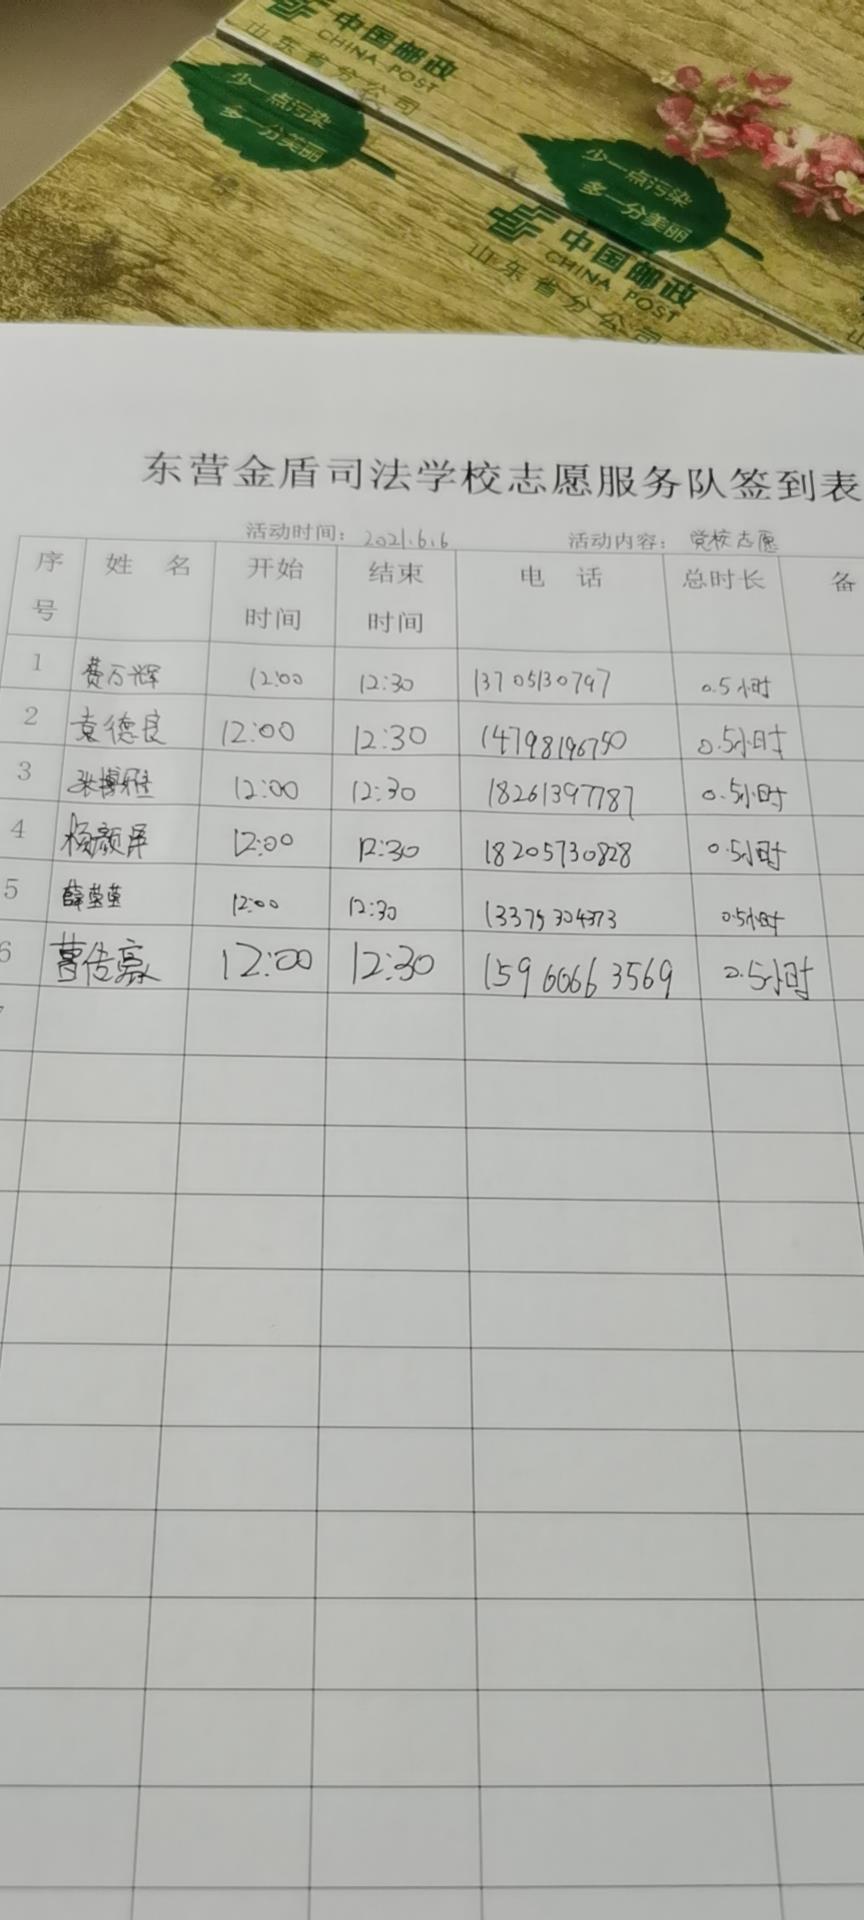 中国邮政
CHINA POST
山东省分公司
少一点污染
多一分美丽
少一点污染
多一分美丽
中国邮政
CHINA POST
山东省分公司
东营金盾司法学校志愿服务队签到表
活动时间： 2021.6.6 活动内容： 党校志愿
序号 姓名 开始时间 结束时间 电话 总时长 备
1 费万辉 12:00 12:30 13705130797 0.5小时
2 袁德良 12:00 12:30 14798196750 0.5小时
3 张博雅 12:00 12:30 18261397787 0.5小时
4 杨颜屏 12:00 12:30 18205730828 0.5小时
5 薛莹莹 12:00 12:30 13375304373 0.5小时
6 曹传豪 12:00 12:30 15960663569 0.5小时